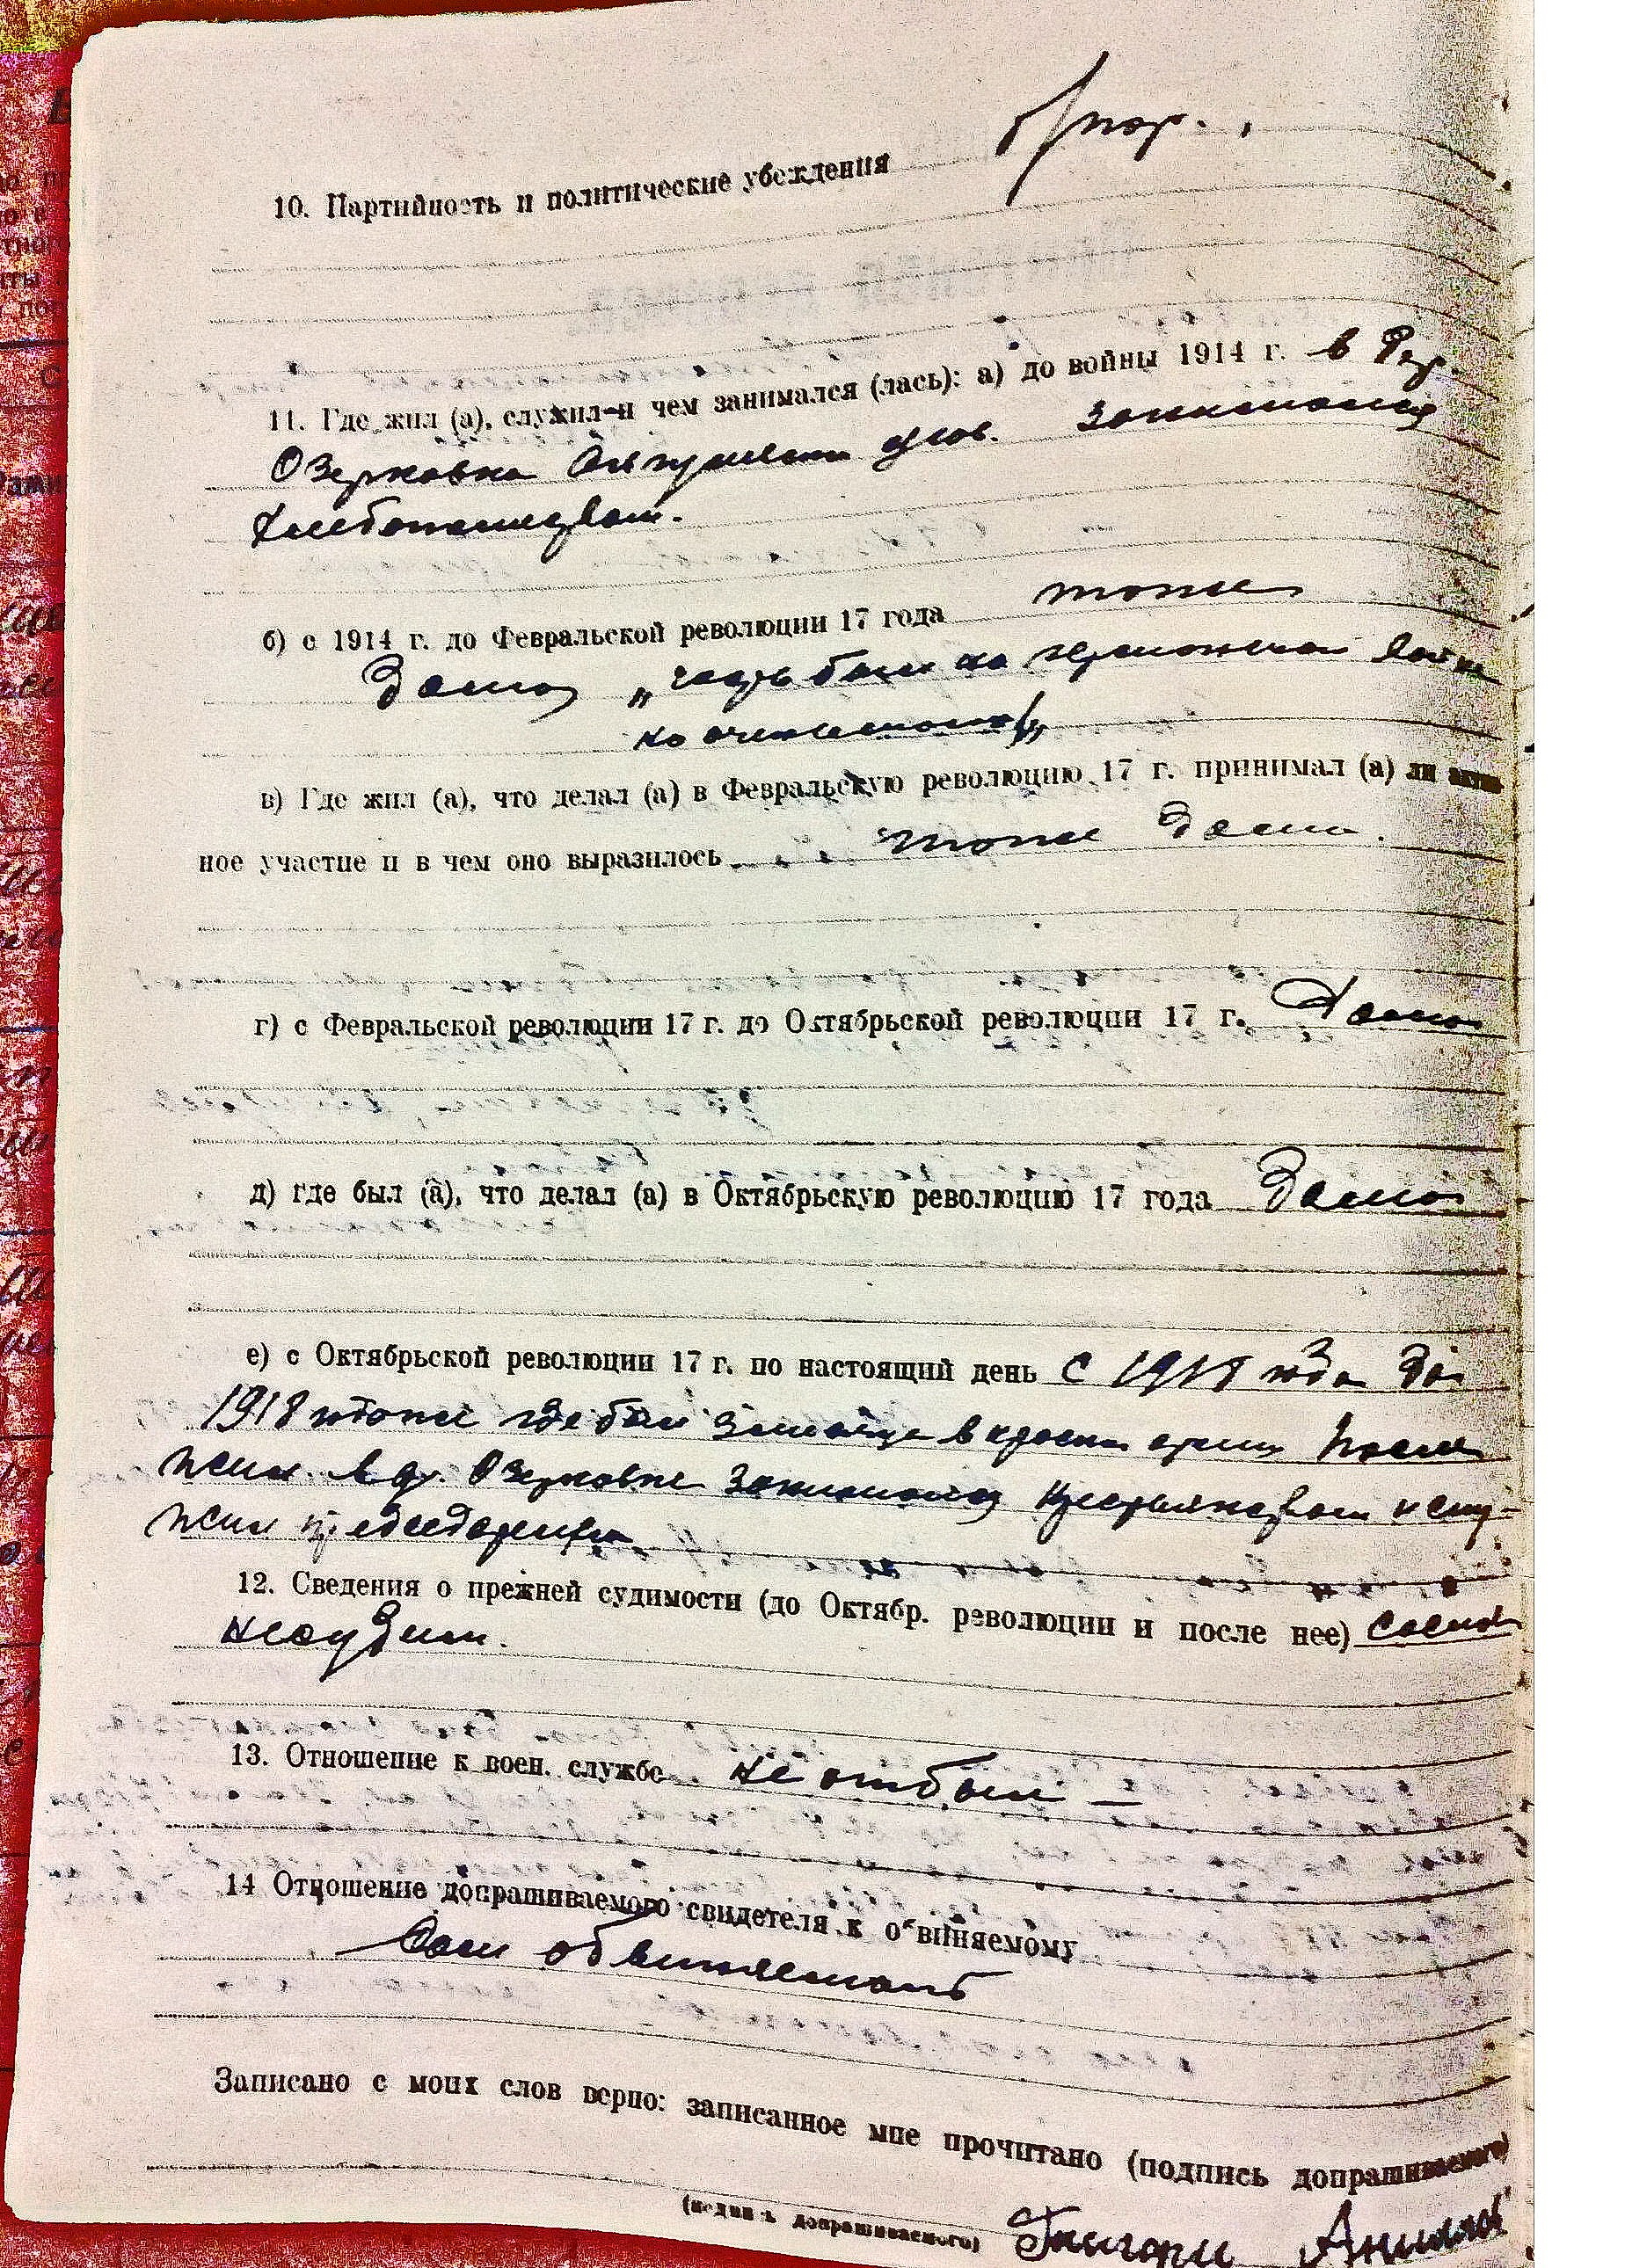 б/пар.
10. Партийность и политические убеждения
11. Где жил (а), служил и чем занимался (лась): а) до войны 1914 г. в дер.
Озерковка занимался
хлебопашеством.
б) с 1914 г. до Февральской революции 17 года тоже
дома, был на германской войне
в) Где жил (а), что делал (а) в Февральскую революцию 17 г. принимал (а) ли актив
ное участие и в чем оно выразилось тоже дома.
г) с Февральской революции 17 г. до Октябрьской революции 17 г. Дома
д) где был (а), что делал (а) в Октябрьскую революцию 17 года Дома
е) с Октябрьской революции 17 г. по настоящий день с года до
1918 был в армии после
жил в д. Озерковке занимался крестьянством и слу-
жил председателем
12. Сведения о прежней судимости (до Октябр. революции и после нее)
несудим.
13. Отношение к воен. службе не отбыл —
14 Отношение допрашиваемого свидетеля к обвиняемому
Сам обвиняемый
Записано с моих слов верно: записанное мне прочитано (подпись допрашиваемого)
(подпись допрашиваемого)